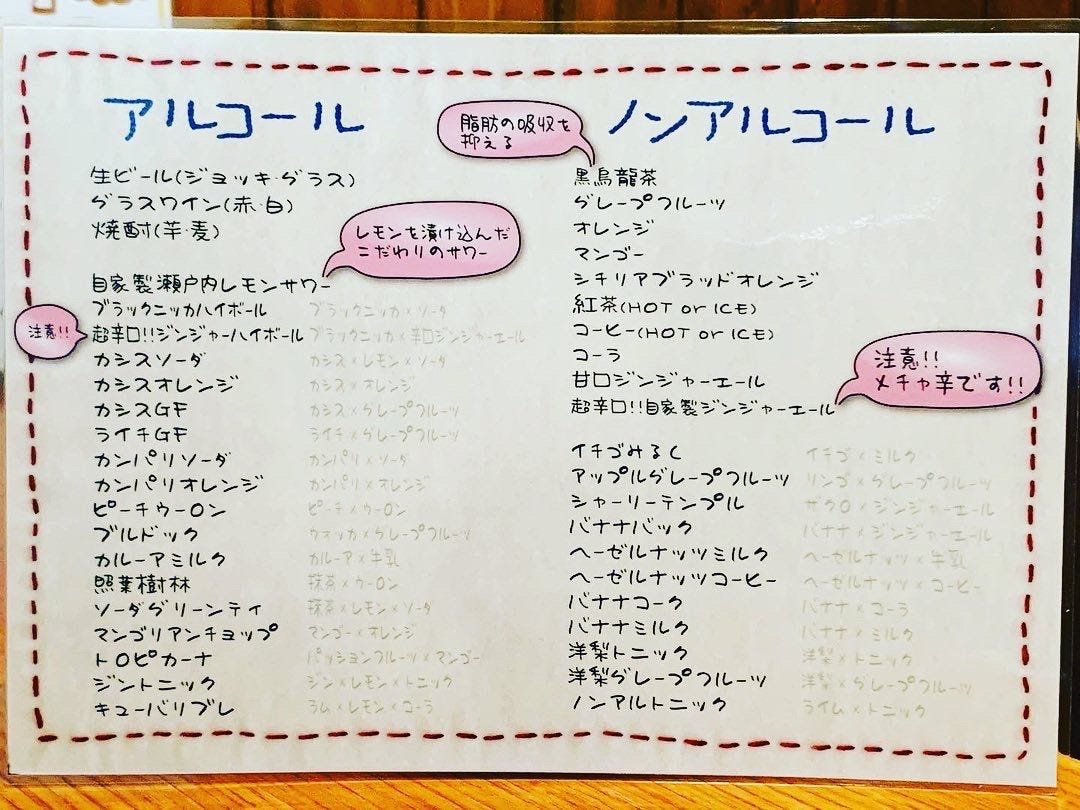 アルコール
生ビール(ジョッキ・グラス)
グラスワイン(赤・白)
焼酎(芋・麦)
レモンを漬け込んだ
こだわりのサワー
自家製瀬戸内レモンサワー
ブラックニッカハイボール ブラックニッカ×ソーダ
注意!!
超辛口!!ジンジャーハイボール ブラックニッカ×辛口ジンジャーエール
カシスソーダ カシス×レモン×ソーダ
カシスオレンジ カシス×オレンジ
カシスGF カシス×グレープフルーツ
ライチGF ライチ×グレープフルーツ
カンパリソーダ カンパリ×ソーダ
カンパリオレンジ カンパリ×オレンジ
ピーチウーロン ピーチ×ウーロン
ブルドック ウオッカ×グレープフルーツ
カルーアミルク カルーア×牛乳
照葉樹林 抹茶×ウーロン
ソーダグリーンティ 抹茶×レモン×ソーダ
マンゴリアンチョップ マンゴー×オレンジ
トロピカーナ パッションフルーツ×マンゴー
ジントニック ジン×レモン×トニック
キューバリブレ ラム×レモン×コーラ
ノンアルコール
脂肪の吸収を
抑える
黒烏龍茶
グレープフルーツ
オレンジ
マンゴー
シチリアブラッドオレンジ
紅茶(HOT or ICE)
コーヒー(HOT or ICE)
コーラ
甘口ジンジャーエール
注意!!
メチャ辛です!!
超辛口!!自家製ジンジャーエール
イチゴみるく イチゴ×ミルク
アップルグレープフルーツ リンゴ×グレープフルーツ
シャーリーテンプル ザクロ×ジンジャーエール
バナナバック バナナ×ジンジャーエール
ヘーゼルナッツミルク ヘーゼルナッツ×牛乳
ヘーゼルナッツコーヒー ヘーゼルナッツ×コーヒー
バナナコーク バナナ×コーラ
バナナミルク バナナ×ミルク
洋梨トニック 洋梨×トニック
洋梨グレープフルーツ 洋梨×グレープフルーツ
ノンアルトニック ライム×トニック